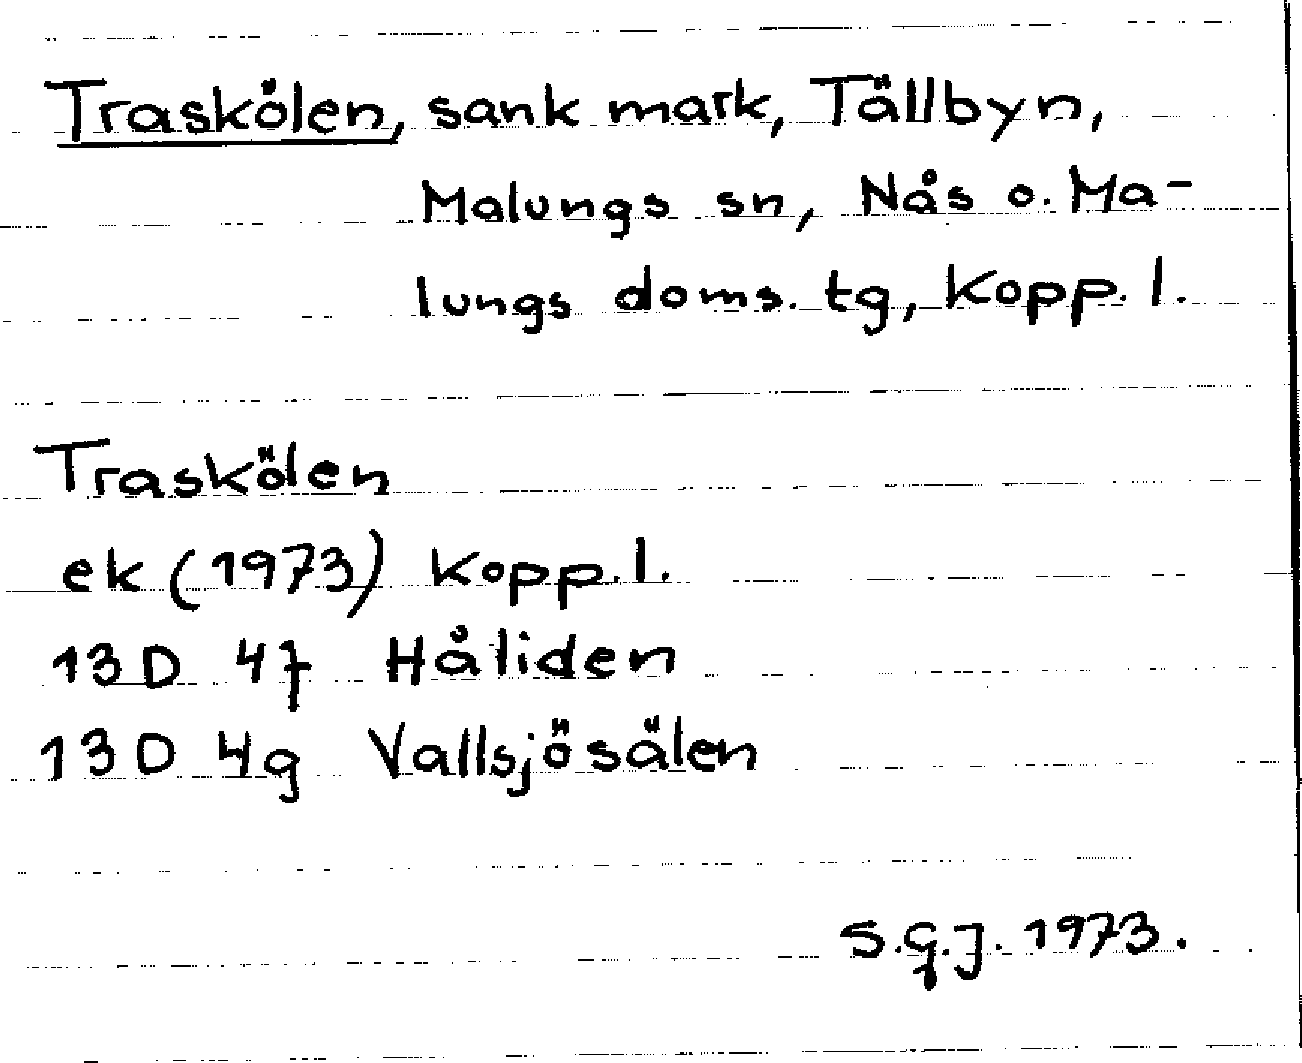 Traskölen, sank mark, Tällbyn,
Malungs sn, Nås o. Ma-
lungs doms. tg, Kopp. l.
Traskölen
ek (1973) Kopp. l.
13D 4f Håliden
13D 4g Vallsjösälen
S.G.J. 1973.